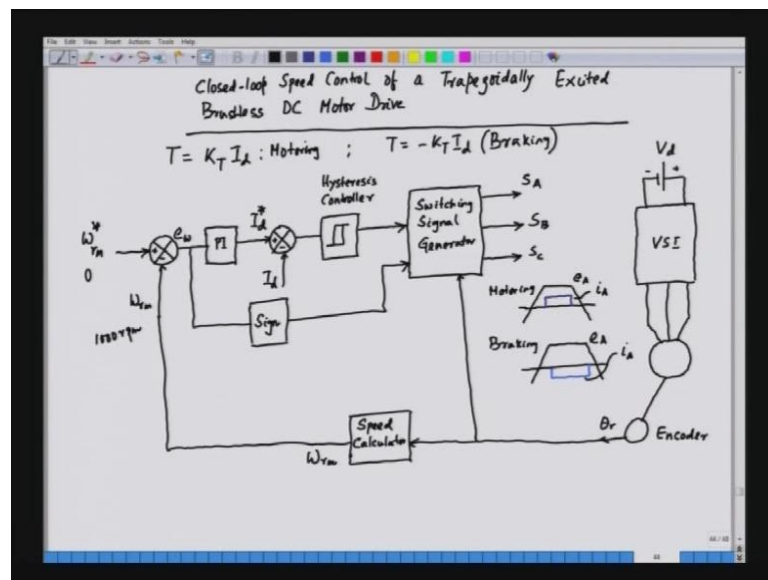 File Edit View Insert Actions Tools Help
Closed-loop Speed Control of a Trapezoidally Excited
Brushless DC Motor Drive
T = K_T I_d : Motoring ; T = -K_T I_d (Braking)
Hysteresis
Controller
V_d
- +
ω*_rm
0
+
-
e_ω
PI
I*_d
+
-
I_d
Switching
Signal
Generator
S_A
S_B
S_C
VSI
ω_rm
1000 rpm
Sign
Motoring
e_A
i_A
Braking
e_A
i_A
Speed
Calculator
ω_rm
θ_r
Encoder